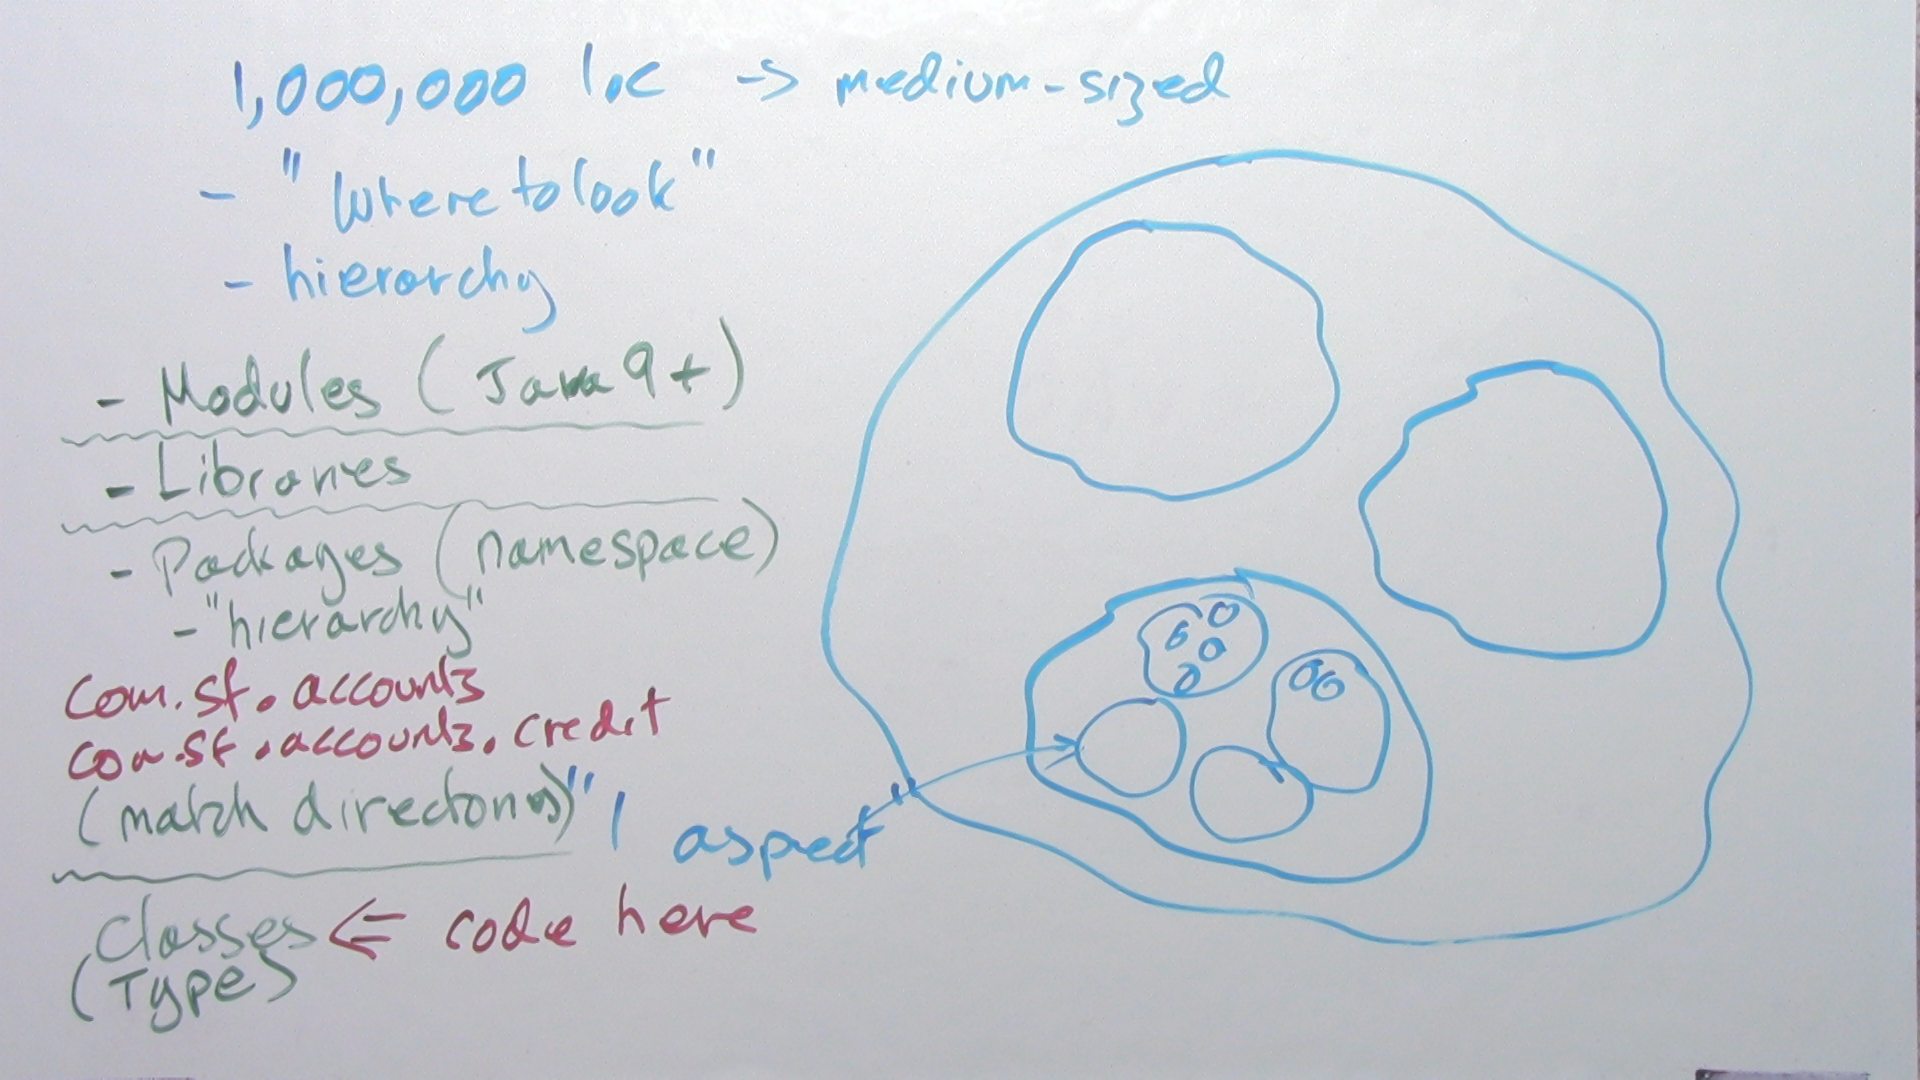 1,000,000 loc -> medium-sized
- "where to look"
- hierarchy
- Modules (Java 9+)
- Libraries
- Packages (namespace)
- "hierarchy"
com.st.accounts
com.st.accounts.credit
(match directories)
"1 aspect
Classes <= code here
(Type)